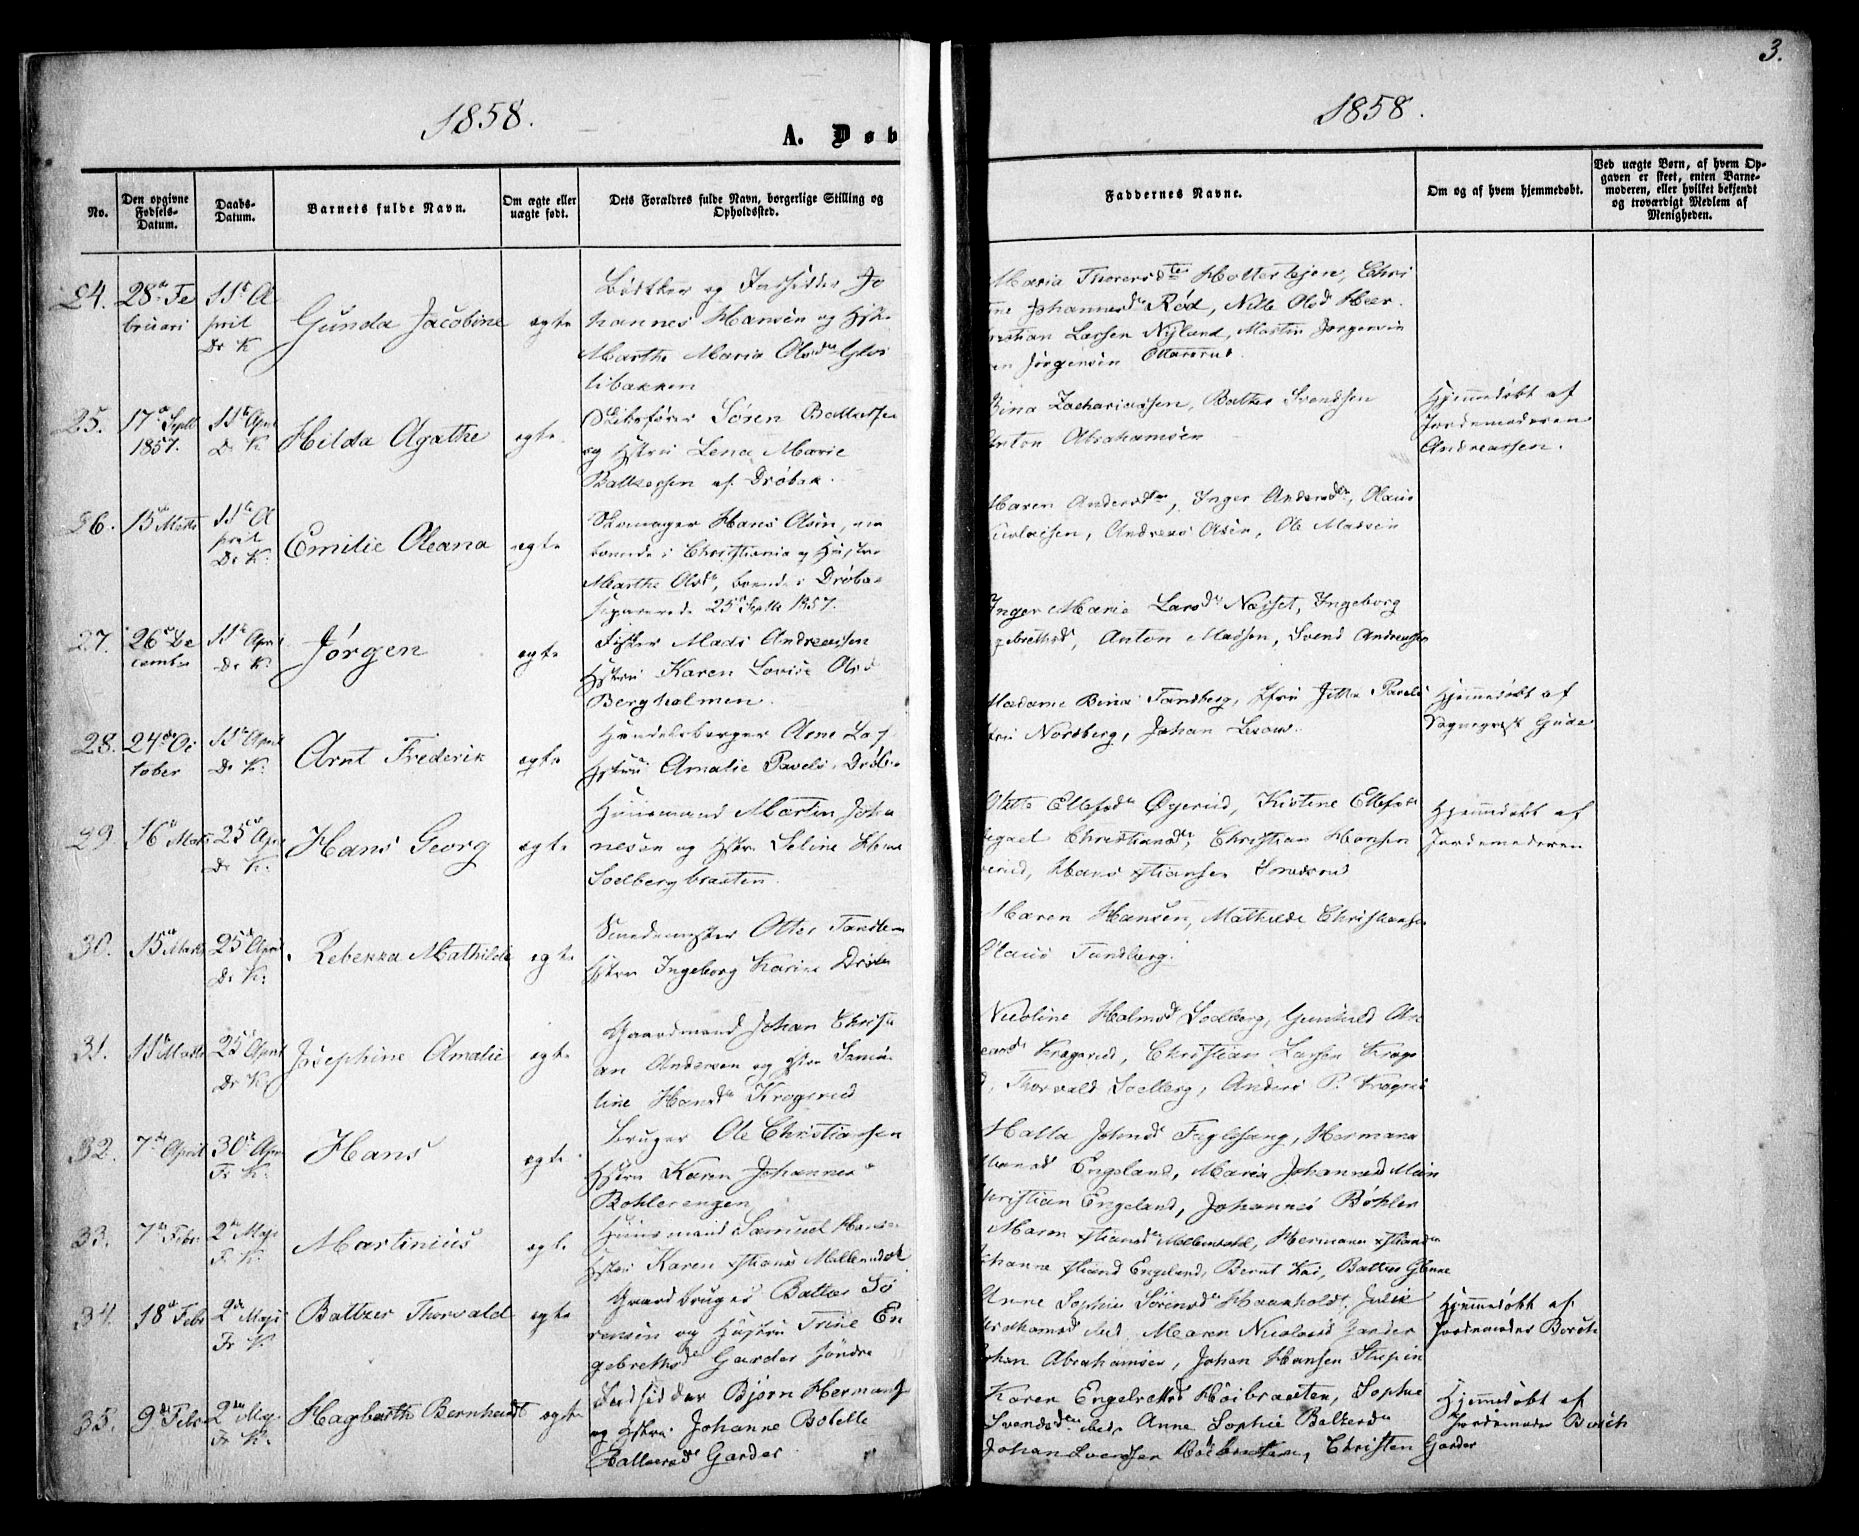 3.
1858.
A. Døb
No.
Den opgivne Fødsels-Datum.
Daabs-Datum.
Barnets fulde Navn.
Om ægte eller uægte født.
Dets Forældres fulde Navn, borgerlige Stilling og Opholdssted.
24.
28de Fe
bruari
11te A
pril
Dr K
Gunda Jacobine
ægte
Bødker og Indsidder Jo
hannes Hansen og Hst.
Marthe Maria Olsdr
libakken
25.
17de Septb
1857.
11te April
Dr K
Hilda Agathe
ægte
Skibsfører Søren
og Hstru Lena Marie
Baltzersen af Drøbak.
26.
15de Marts
11te A
pril
Dr K.
Emilie Oleana
ægte
Skomager Hans Olsen, nu
boende i Christiania og Hustru
Marthe Olsdr, boende i Drøbak
separerede 25de Septb 1857.
27.
26de De
cember
11te April
Dr K.
Jørgen
ægte
Fisker Mads Andreassen
Hstru Karen Lovise Olsd
Bergholmen.
28.
24de Oc
tober
11te April
Dr K.
Arnt Frederik
ægte
Handelsborger Arne
Hstru Amalie Pavels Drøbak
29
16de Marts
25de April
Dr K.
Hans Georg
ægte
Huusmand Martin Joha
nesen og Hstru
Solbergbraaten.
30.
15de Marts
25de April
Dr K.
Rebekka Mathilde
ægte
Smedemester Otter Tandberg
Hstru Ingeborg Karine Drøbak
31.
11te Marts
25de April
Dr K.
Josephine Amalie
ægte
Gaardmand Johan Christi
an Andersen og Hstru
line Hansdr Krogsrud
32.
7de April
30te April
Fr K.
Hans
ægte
Bruger Ole Christiansen
Hstru Karen Johannesd
Bohlerengen
33.
7de Febr
2den Maj
Fr K
Martinius
ægte
Huusmand Samuel Hansen
Hstru Karen
34.
18de Febr
2den Maji
Fr K.
Baltzer Thorvald
ægte
Gaardbruger Baltzer Sø
rensen og Hustru Trine En
gebrethsdr Garder søndre
35.
9de Febr
2den Maj
Fr K.
Hagbarth Bernhardt
ægte
Indsidder Bjørn Hermans
og Hstru Johanne Bolette
Baltzersdr Garder
1858.
Faddernes Navne.
Om og af hvem hjemmedøbt.
Ved uægte Børn, af hvem Op-
gaven er skeet, enten Barne-
moderen, eller hvilket bekjendt
og troværdigt Medlem af
Menigheden.
Maria Thoresdtr Chri
ine Johannesdr Rød, Nille Olsd Hær.
ristian Larsen Nyland, Martin Jørgensen
en Jørgensen Ottarsrud.
Bina Zachariassen, Baltzer Svendsen
Anton Abrahamsen
Hjemmedøbt af
Jordemoderen
Andreassen.
Maren Andersdtr, Inger Andersdtr, Olaus
Nicolaisen, Andreas Olsen, Ole Madsen
Inger Marie Larsdr Næsset, Ingeborg
Anton Madsen, Svend Andreassen
Madame Bina Tandberg, Jfru Jitta Pavels
Nordberg, Johan
Hjemmedøbt af
Sognepræst Gude
Ellefsdr Øyerud, Kirstine Ellefsdr
Christiansdr, Christian Hansen
erud, Hans xstiansen
Hjemmedøbt af
Jordemoderen
Maren Hansen, Mathilde Christiansen
Olaus Tandberg.
Nicoline Holmsdr Solberg, Gunhild An
Krogsrud, Christian Larsen Krogs
d, Thorvald Solberg, Anders P. Krogsrud
Halla Johnsdr Fuglesang, Hermana
Engeland, Maria Johannesd
Christian Engeland, Johannes Bøhler
Maren xstiansdtr Hermann xstiansen
Johanne xtiansd Engeland, Bernt Baltzer Glenne
Anne Sophie Sørensdr Haaxholdt, Julie
Abrahamsd ibid. Maren Nicolaisd Garder
Johan Abrahamsen, Johan Hansen
Hjemmedøbt af
Jordemoder Borch
Karen Engebretsd Høibraaten, Sophie
Svendsdtr ibid, Anne Sophie Baltzersdr
Johan Svendsen Høibraaten, Christen Garder
Hjemmedøbt af
Jordemoder Borch